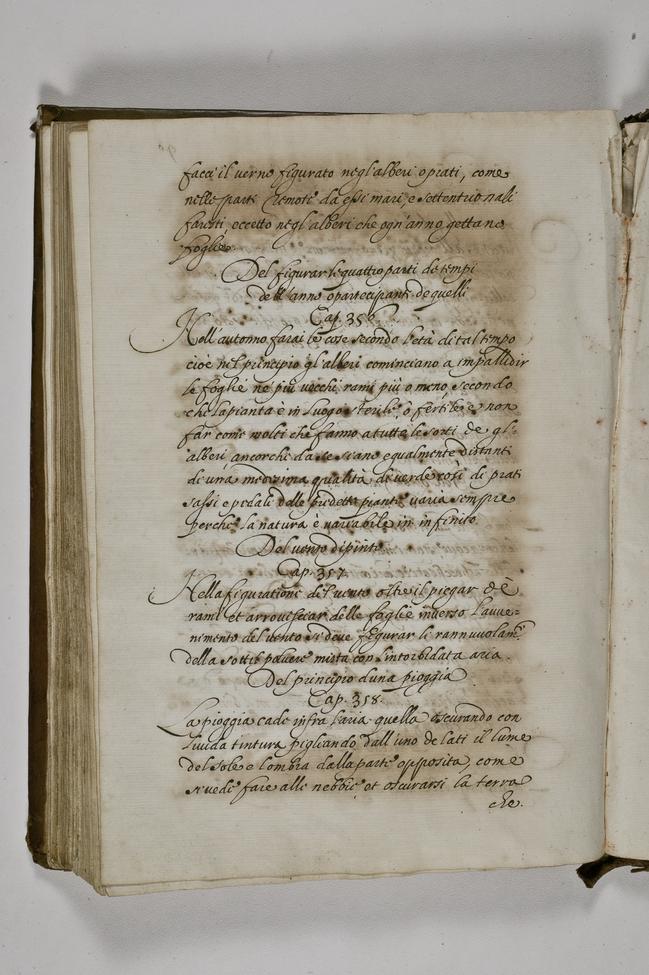 facci il verno figurato negl'alberi o prati, come
nelle parti remote da essi mari, e settentrionali
faresti, eccetto negl'alberi che ogn'anno gettano
foglie.
Del figurar le quattro parti de tempi
dell'anno o partecipanti de quelli
Cap. 356
Nell'autonno farai le cose secondo l'età di tal tempo
cioè nel principio gl'alberi cominciano a impallidir
le foglie ne più vecchi rami più o meno secondo
che la pianta è in luogo sterile, o fertile e non
far come molti che fanno a tutte le sorti de gl'
alberi ancorche da se siano equalmente distanti
di una medesima qualità di verde così di prati
sassi e pedali delle predette piante varia sempre
perche la natura è variabile in infinito
Del vento dipinto
Cap. 357.
Nella figuratione del vento oltre il piegar de
rami et arrovesciar delle foglie inverso l'auve-
nimento del vento si deve figurar li rannuvolam.ti
della sottil polvere mista con l'intorbidata aria.
Del principio d'una pioggia
Cap. 358.
La pioggia cade infra l'aria quella oscurando con
livida tintura pigliando dall'uno de lati il lume
del sole e l'ombra dalla parte opposita, come
si vede fare alle nebbie et oscurarsi la terra
che.